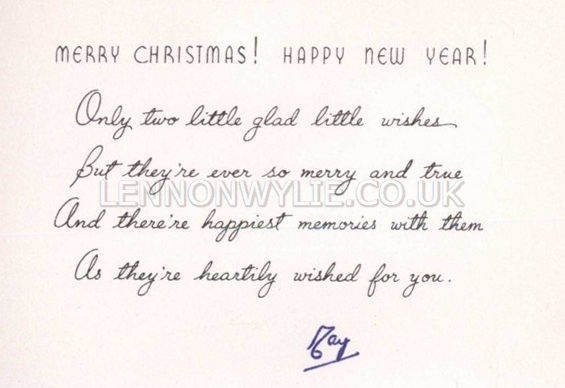 MERRY CHRISTMAS! HAPPY NEW YEAR!
Only two little glad little wishes
But they're ever so merry and true
LENNONWYLIE.CO.UK
And there're happiest memories with them
As they're heartily wished for you.